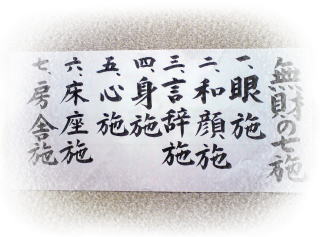 無財の七施
一、眼施
二、和顔施
三、言辞施
四、身施
五、心施
六、床座施
七、房舎施